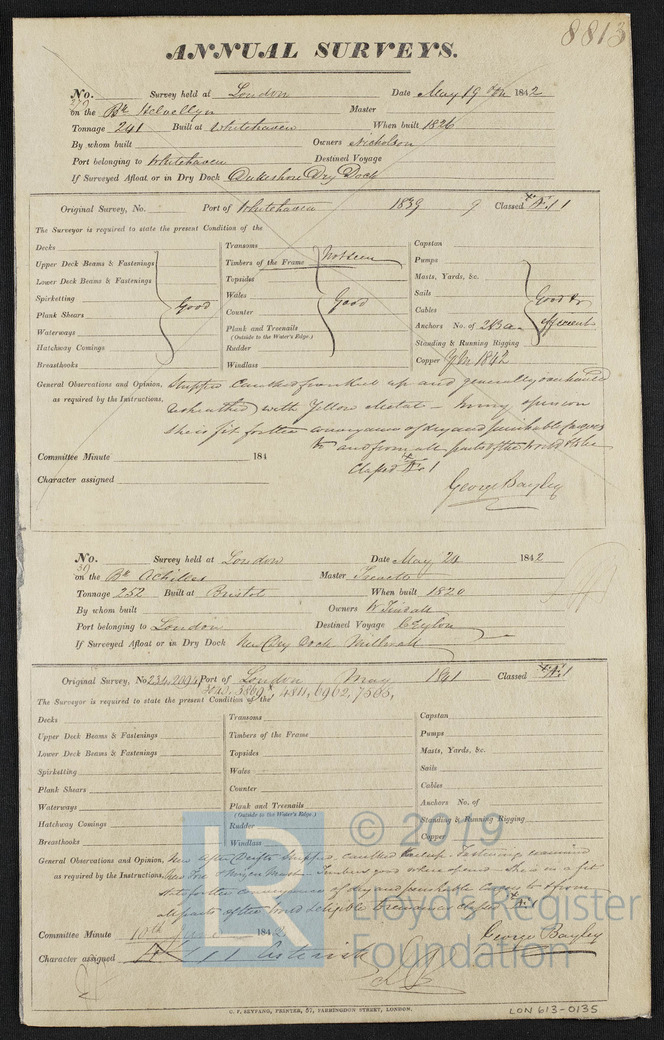 8813
ANNUAL SURVEYS.
No. 279 Survey held at London Date May 19th 1842
on the Bk Helvellyn Master
Tonnage 241 Built at Whitehaven When built 1826
By whom built Owners Nicholson
Port belonging to Whitehaven Destined Voyage
If Surveyed Afloat or in Dry Dock Dukeshore Dry Dock
Original Survey, No. Port of Whitehaven 1839 9 Classed Æ 1
The Surveyor is required to state the present Condition of the
Decks
Upper Deck Beams & Fastenings
Lower Deck Beams & Fastenings
Spirketting
Plank Shears
Waterways
Hatchway Comings
Breasthooks
Good
Transoms
Timbers of the Frame Not seen
Topsides
Wales
Counter
Plank and Treenails
(Outside to the Water's Edge.)
Rudder
Windlass
Good
Capstan
Pumps
Masts, Yards, &c.
Sails
Cables
Anchors No. of
Standing & Running Rigging
Copper 1842
Good &
efficient
General Observations and Opinion, Stripped caulked up and generally overhauled
as required by the Instructions. unsheathed with Yellow Metal – In my opinion
She is fit for the conveyance of dry and perishable Cargoes
to and from all parts of the World & to be
Classed Æ 1
Committee Minute 184
Character assigned
George Bayley
No. 30 Survey held at London Date May 24 1842
on the Bk Achilles Master
Tonnage 252 Built at Bristol When built 1820
By whom built Owners W Tindall
Port belonging to London Destined Voyage Ceylon
If Surveyed Afloat or in Dry Dock New Dry Dock Millwall
Original Survey, No. 234, 2094 Port of London May 1841 Classed Æ 1
3869, 4811, 6962, 7565,
The Surveyor is required to state the present Condition of the
Decks
Upper Deck Beams & Fastenings
Lower Deck Beams & Fastenings
Spirketting
Plank Shears
Waterways
Hatchway Comings
Breasthooks
Transoms
Timbers of the Frame
Topsides
Wales
Counter
Plank and Treenails
(Outside to the Water's Edge.)
Rudder
Windlass
Capstan
Pumps
Masts, Yards, &c.
Sails
Cables
Anchors No. of
Standing & Running Rigging
Copper
General Observations and Opinion, New Stripped, caulked Fastenings examined
as required by the Instructions. New Fore & Mizen Masts Timbers good where seen She is in a fit
state for the conveyance of dry and perishable Cargoes to & from
all parts of the World & eligible to remain classed Æ 1
Committee Minute 10th June 1842
George Bayley
Character assigned Æ 1 Asterisk
© 2019
LR
Lloyd's Register
Foundation
G. F. SEYFANG, PRINTER, 57, FARRINGDON STREET, LONDON.
LON 613-0135